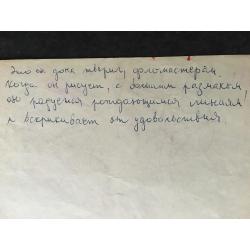 Это он дома творил, фломастером.
Когда он рисует, с большим размахом,
он радуется рождающимся линиям,
и вскрикивает от удовольствия.